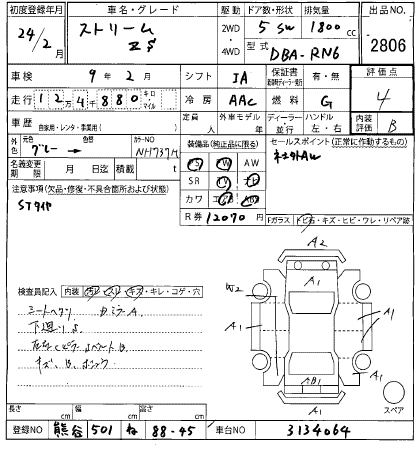 初度登録年月 車名・グレード 駆動 ドア数・形状 排気量 出品NO.
24/2月 ストリーム ZS 2WD・4WD 5 SW 1800cc 2806
型式 DBA-RN6
車検 9年2月 シフト IA 保証書 有・無 評価点
走行 12万4千880 キロ マイル 冷房 AAC 燃料 G 4
車歴 自家用・レンタ・事業用( ) 定員 人 外車モデル 年 ディーラー・並行 ハンドル 左・右 内装評価 B
外色 元色 グレー → 色替 カラーNO NH737M 装備品(純正品に限る) セールスポイント(正常に作動するもの)
名義変更期限 月 日迄 積載 t PS PW AW 社外AW
注意事項(欠品・修復・不具合箇所および状態) SR TV ナビ
STタイヤ カワ エアB ABS
R券 12070円 Fガラス トビ石・キズ・ヒビ・ワレ・リペア跡
検査員記入 内装 ヨゴレ・スレ・キズ・キレ・コゲ・穴
シートヘタリ
下廻りS
キズ、B.
A2
W2 A1
A1 A1
A1
AB1 A1
A1
スペア
長さ cm 幅 cm 高さ cm
登録NO 熊谷 501 ね 88-45 車台NO 3134064